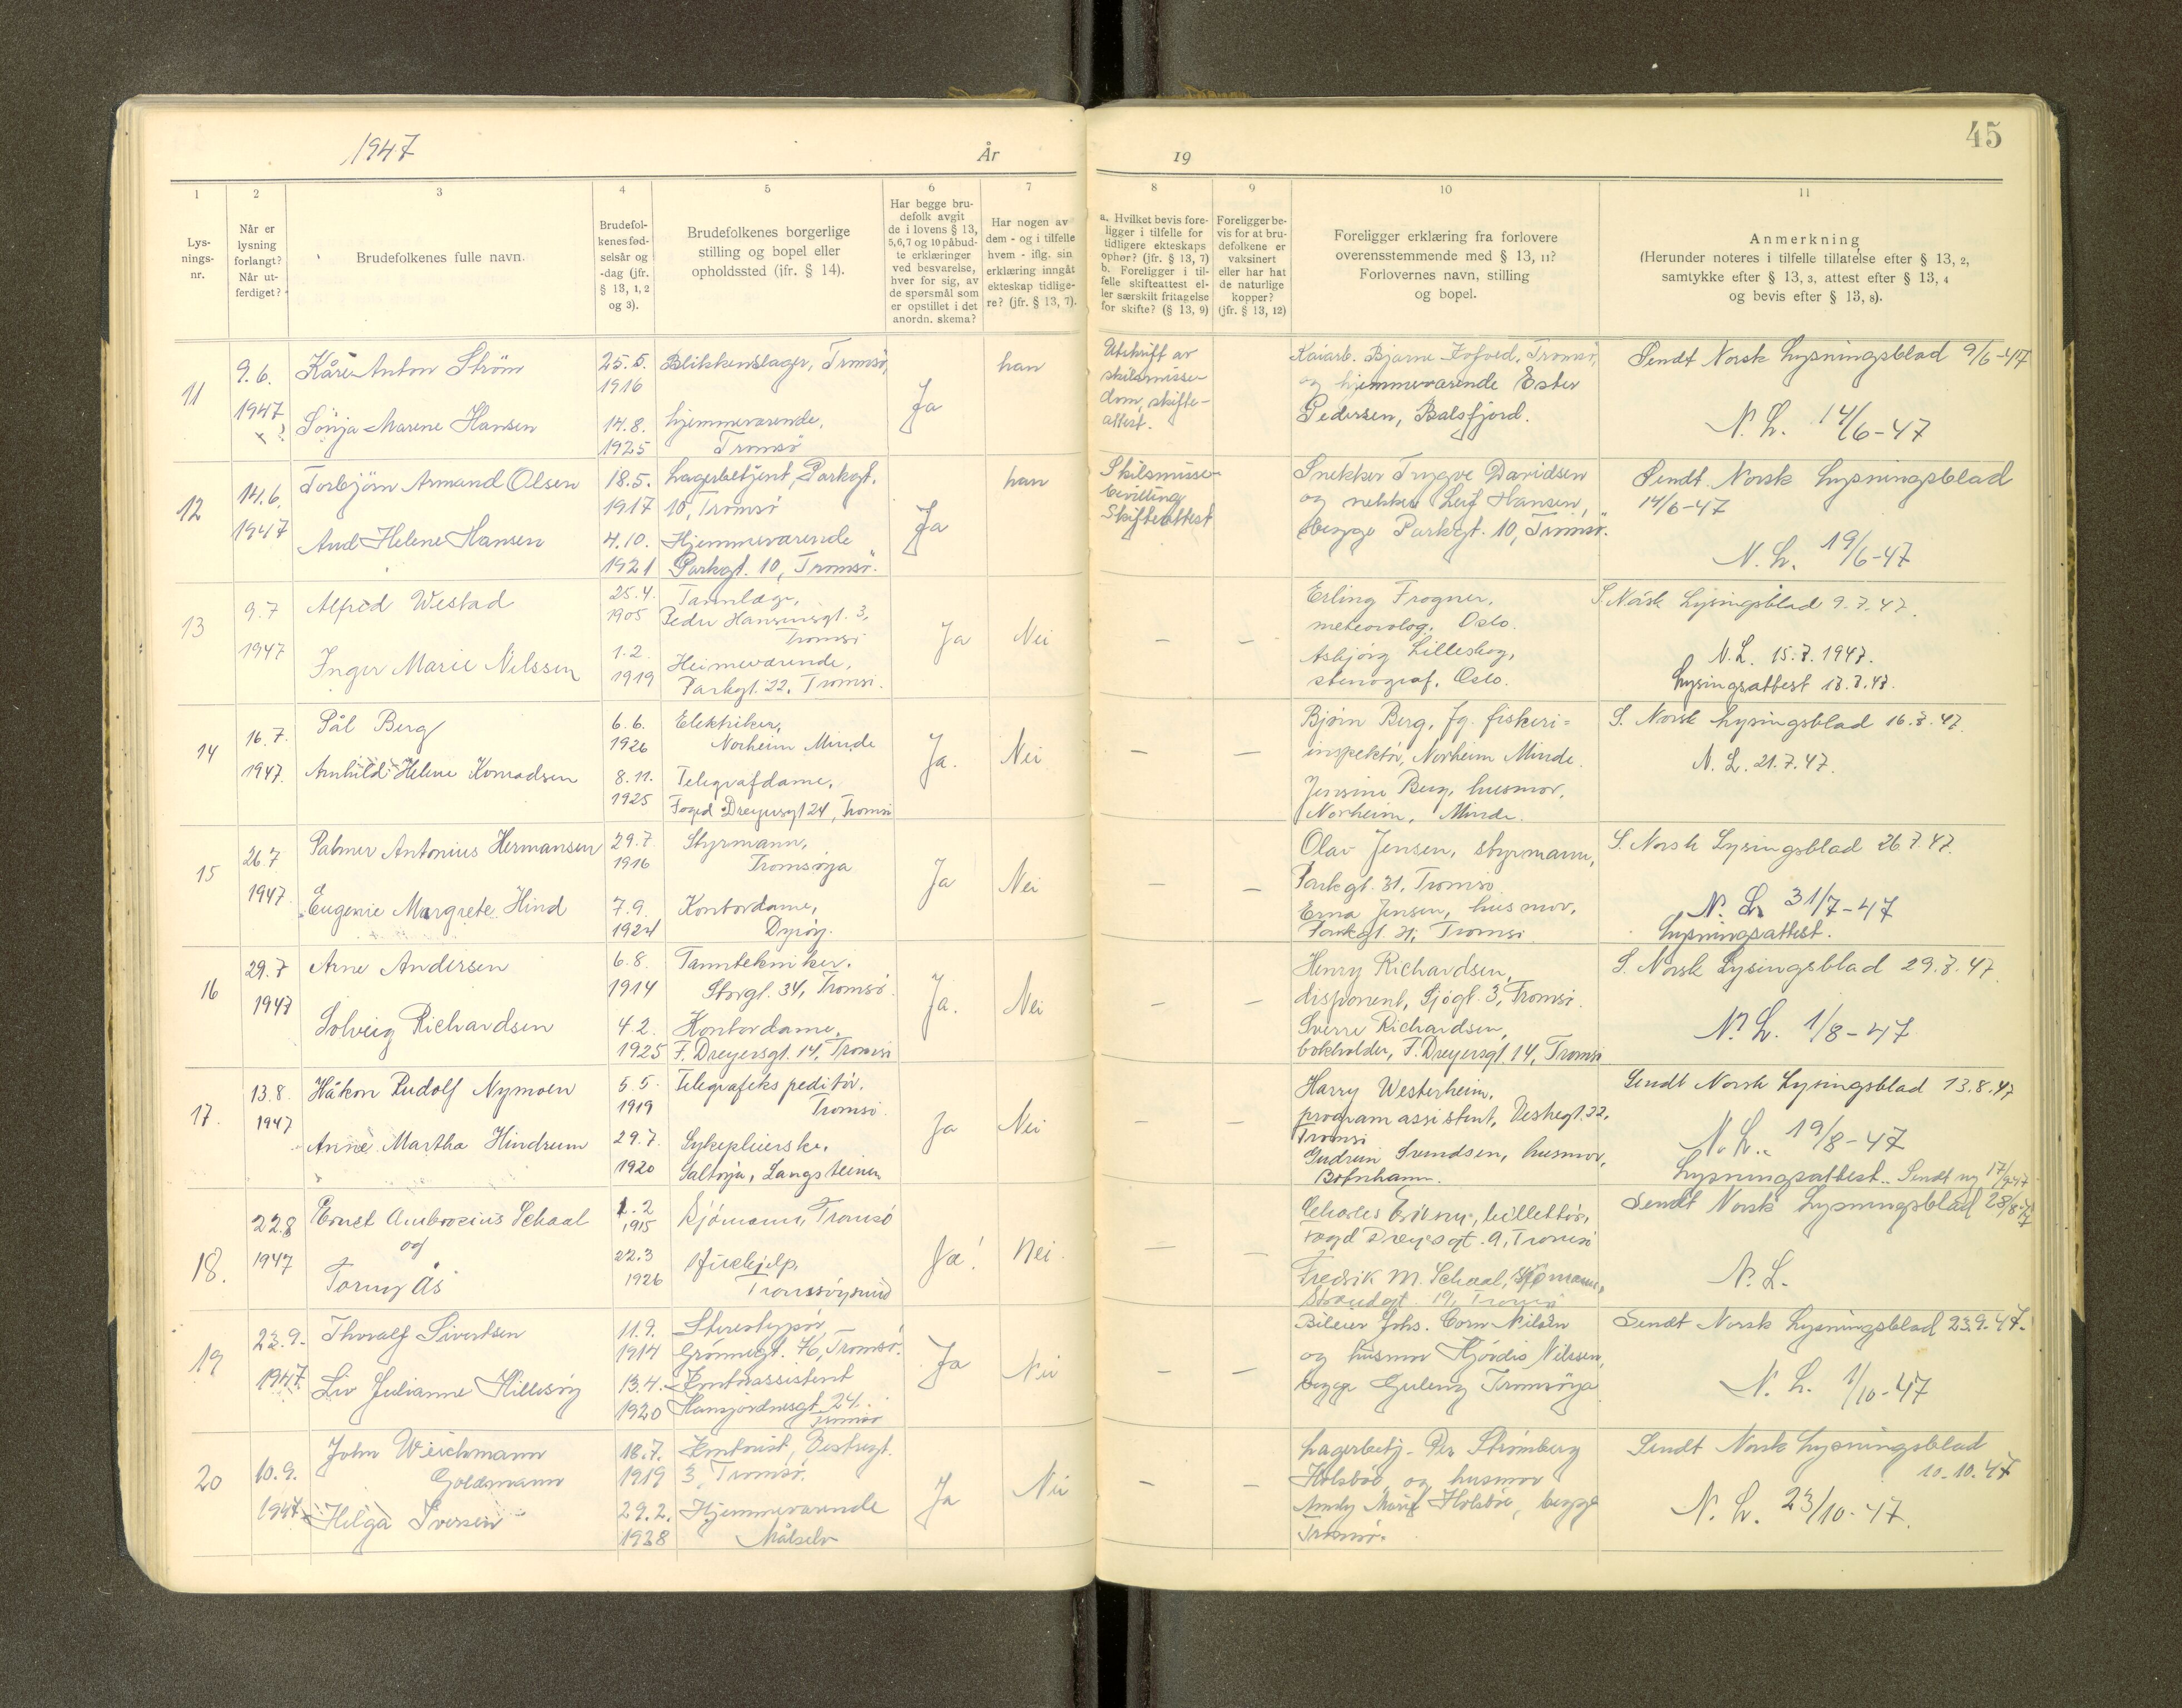 1947
År
19
45
1
2
3
4
5
6
7
8
9
10
11
Lys-
nings-
nr.
Når er
lysning
forlangt?
Når ut-
ferdiget?
Brudefolkenes fulle navn.
Brudefol-
kenes fød-
selsår og
-dag (jfr.
§ 13, 1, 2
og 3).
Brudefolkenes borgerlige
stilling og bopel eller
opholdssted (jfr. § 14).
Har begge bru-
defolk avgit
de i lovens § 13,
5, 6, 7 og 10 påbud-
te erklæringer
ved besvarelse,
hver for sig, av
de spørsmål som
er opstillet i det
anordn. skema?
Har nogen av
dem - og i tilfelle
hvem - iflg. sin
erklæring inngåt
ekteskap tidlige-
re? (jfr. § 13, 7).
a. Hvilket bevis fore-
ligger i tilfelle for
tidligere ekteskaps
ophør? (jfr. § 13, 7)
b. Foreligger i til-
felle skifteattest el-
ler særskilt fritagelse
for skifte? (§ 13, 9)
Foreligger be-
vis for at bru-
defolkene er
vaksinert
eller har hat
de naturlige
kopper?
(jfr. § 13, 12)
Foreligger erklæring fra forlovere
overensstemmende med § 13, 11?
Forlovernes navn, stilling
og bopel.
Anmerkning
(Herunder noteres i tilfelle tillatelse efter § 13, 2,
samtykke efter § 13, 3, attest efter § 13, 4
og bevis efter § 13, 8).
11
9.6.
1947
Kåre Anton Strøm
Sonja Marene Hansen
25.5.
1916
14.8.
1925
Blikkenslager, Tromsö,
hjemmeværende,
Tromsö
Ja
han
Utskrift av
skilsmisse-
dom, skifte-
attest.
Kaiarb. Bjarne, Tromsö,
og hjemmeværende Ester
Pedersen, Balsfjord.
Sendt Norsk Lysningsblad 9/6-47
N. L. 14/6-47
12
14.6.
1947
Torbjörn Armand Olsen
Aud Helene Hansen
18.5.
1917
4.10.
1921
Lagerbetjent, Parkgt.
10, Tromsö
Hjemmeværende
Parkgt. 10, Tromsö.
Ja
han
Skilsmisse-
bevilling
Skifteattest
Snekker Trygve Davidsen
og Leif Hansen,
begge Parkgt. 10, Tromsö.
Sendt Norsk Lysningsblad
14/6-47
N. L. 19/6-47
13
9.7
1947
Alfred Westad
Inger Marie Nilssen
25.4.
1905
1.2.
1919
Tannlæge,
Peder Hansensgt. 3,
Tromsø
Heimeværende,
Parkgt. 22, Tromsø.
Ja
Nei
–
–
Erling Frogner,
meteorolog, Oslo.
Asbjørg Lilleskog,
stenograf, Oslo.
S. Norsk Lysingsblad 9.7.47.
N. L. 15.7.1947.
Lysingsattest 18.7.47.
14
16.7.
1947.
Pål Berg
Arnhild Helene Konradsen
6.6.
1926
8.11.
1925
Elektriker,
Norheim Minde
Telegrafdame,
Foged Dreyersgt 24, Tromsø
Ja.
Nei
–
–
Bjørn Berg, fg. fiskeri=
inspektør, Norheim Minde.
Jensine Berg, husmor,
Norheim, Minde.
S. Norsk Lysningsblad 16.7.47.
N. L. 21.7.47.
15
26.7
1947.
Palmer Antonius Hermansen
Eugenie Margrete Hind
29.7.
1916
7.9.
1924
Styrmann,
Tromsøya
Kontordame,
Dyrøy.
Ja
Nei
–
–
Olav Jensen, styrmann,
Parkgt. 31, Tromsø.
Erna Jensen, husmor,
Parkgt. 31, Tromsø
S. Norsk Lysingsblad 26.7.47.
N. L. 31/7-47
Lysningsattest.
16
29.7
1947
Arne Andersen
Solveig Richardsen
6.8.
1914
4.2.
1925
Tanntekniker.
Storgt. 34, Tromsø.
Kontordame,
F. Dreyersgt. 14, Tromsø
Ja.
Nei
–
–
Henry Richardsen,
disponent, Sjøgt. 3, Tromsø.
Sverre Richardsen,
bokholder, F. Dreyersgt. 14, Tromsø
S. Norsk Lysingsblad 29.7.47.
N. L. 1/8-47
17.
13.8.
1947
Håkon Rudolf Nymoen
Anne Martha Hindrum
5.5.
1919
29.7.
1920
Telegrafekspeditør,
Tromsø.
Sykepleierske,
Saltøya, Langsteinen
Ja
Nei
–
–
Harry Westerheim,
programassistent, Vestregt. 32,
Tromsø
Gudrun Svendsen, husmor,
Botnhamn.
Sendt Norsk Lysingsblad 13.8.47
N. L. 19/8-47
Lysningsattest. Sendt ny 17/9 47
18.
22.8
1947
Ernst Ambrosius Schaal
og
Torny Ås
1.2
1915
22.3
1926
Sjömann, Tromsö
Hushjelp,
Tromsöysund
Ja!
Nei.
–
–
Fogd Dreyersgt. 9, Tromsö
Fredrik M. Schaal, sjömann,
Strandgt. 19, Tromsö
Sendt Norsk Lysningsblad 28/8-47
N. L.
19
23.9.
1947.
Thoralf Sivertsen
Liv Julianne Hillesöy
11.9.
1914
13.4.
1920
Stereotypör
Grönnegt. 76, Tromsö.
Kontorassistent
Hansjordnesgt. 24.
Tromsö
Ja
Nei
–
–
Bileier Johs. Corn Nilsen
og husmor Hjördis Nilssen,
begge Tromsöya
Sendt Norsk Lysningsblad 23.9.47.
N. L. 1/10-47
20
10.9.
1947
John Weichmann
Goldsmann
Helga Iversen
18.7.
1919
29.2.
1928
Kontorist, Vestregt.
3, Tromsö.
Hjemmeværende
Målselv
Ja
Nei
–
–
Lagerbetj. Per Strömberg
Holsböe og husmor
Marie Holsböe, begge
Tromsö.
Sendt Norsk Lysningsblad
10.10.47
N. L. 23/10-47.